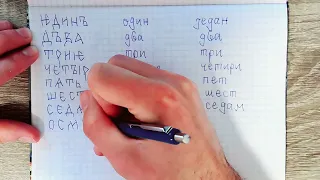 ѤДИНЪ один један
ДЪВА два два
ТРИѤ три три
ЧЕТЫР четири
ПѦТЬ пет
ШЕСТ шест
СЕДМ седам
ОСМ